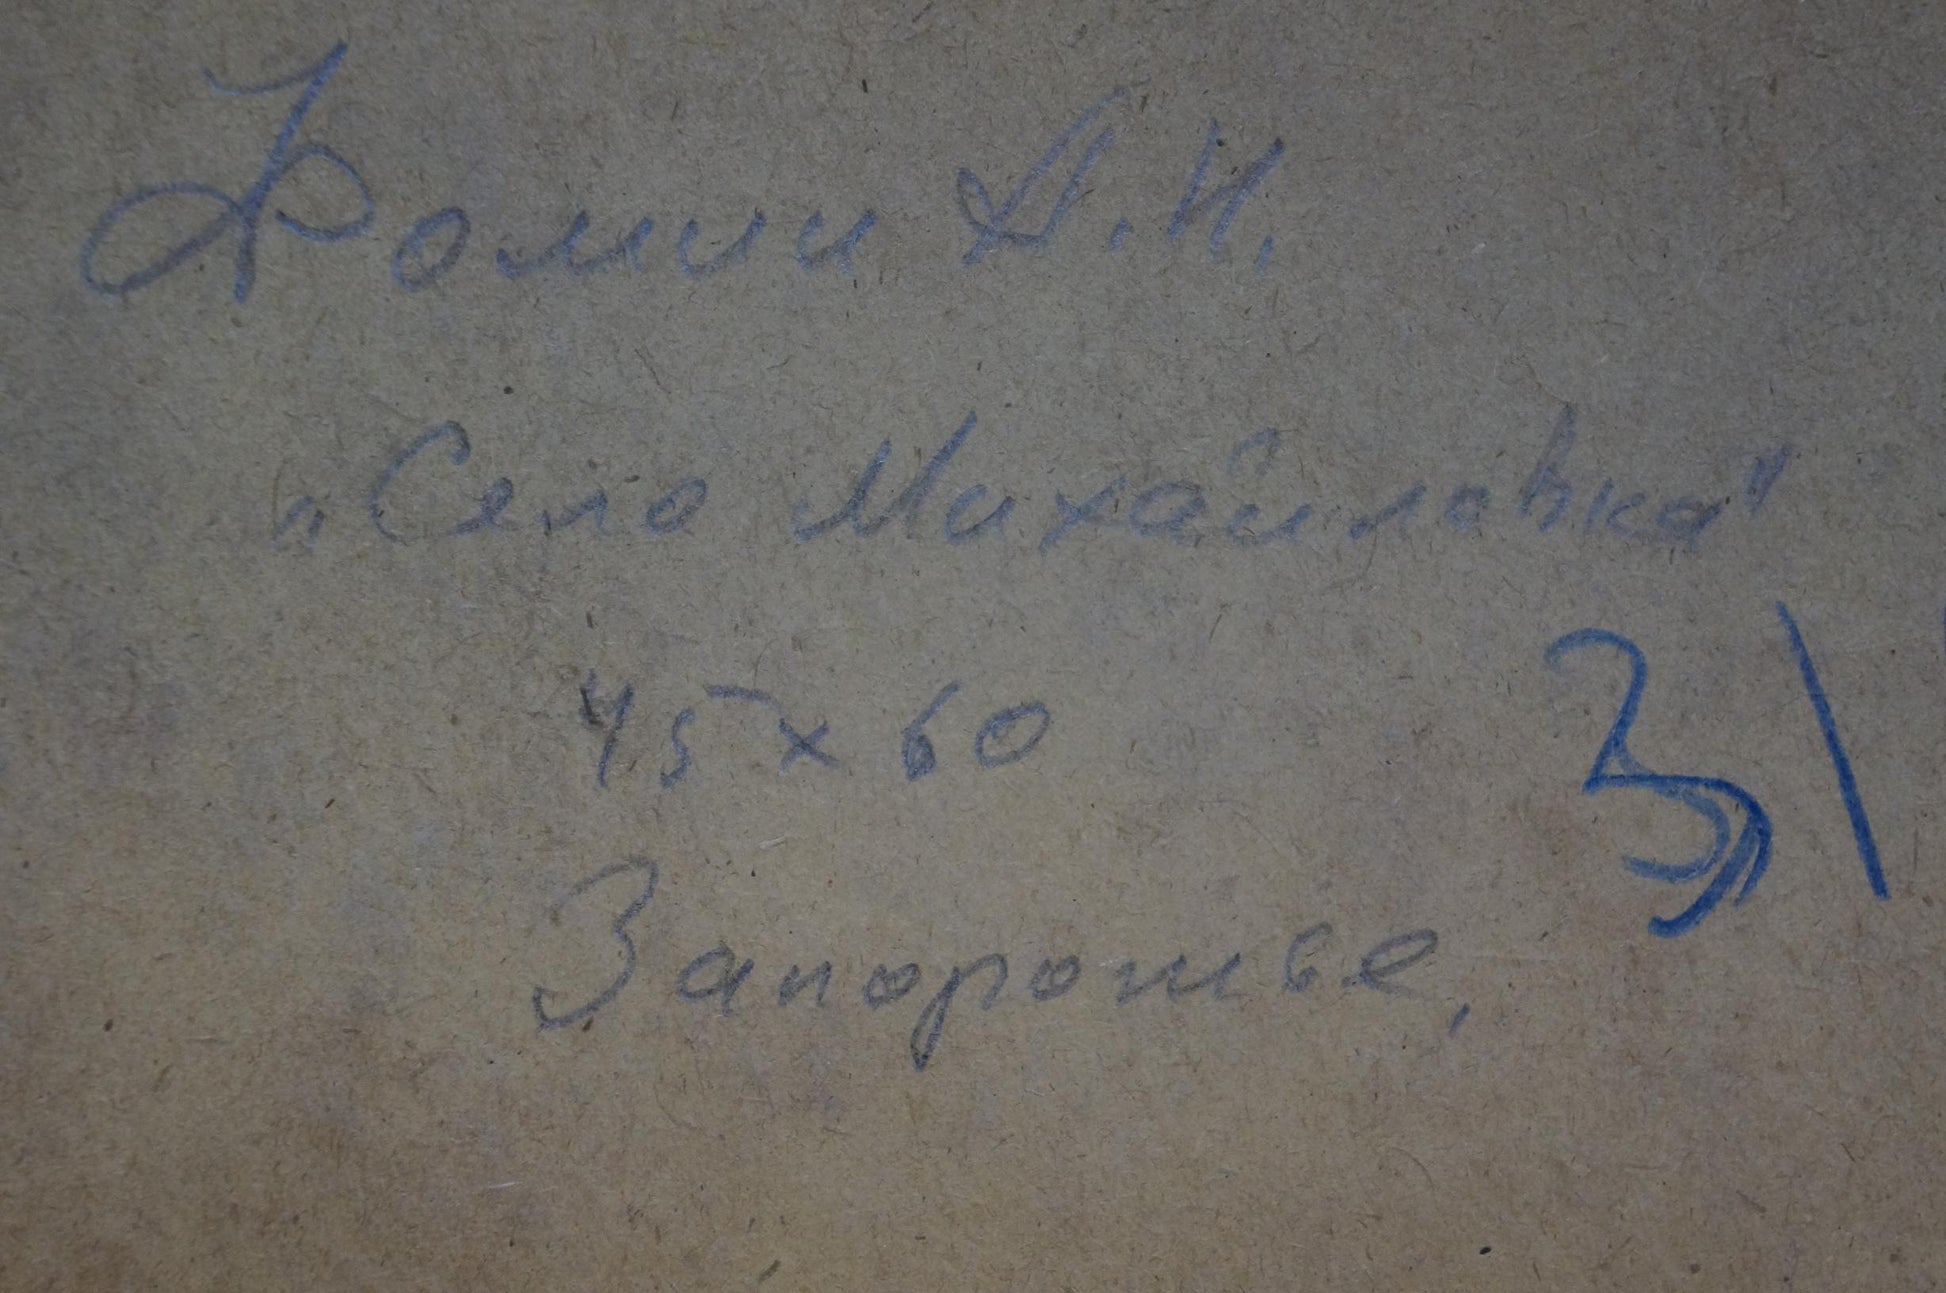 Фомин А.И.
„Село Михайловка"
45 х 60
Запорожье,
31